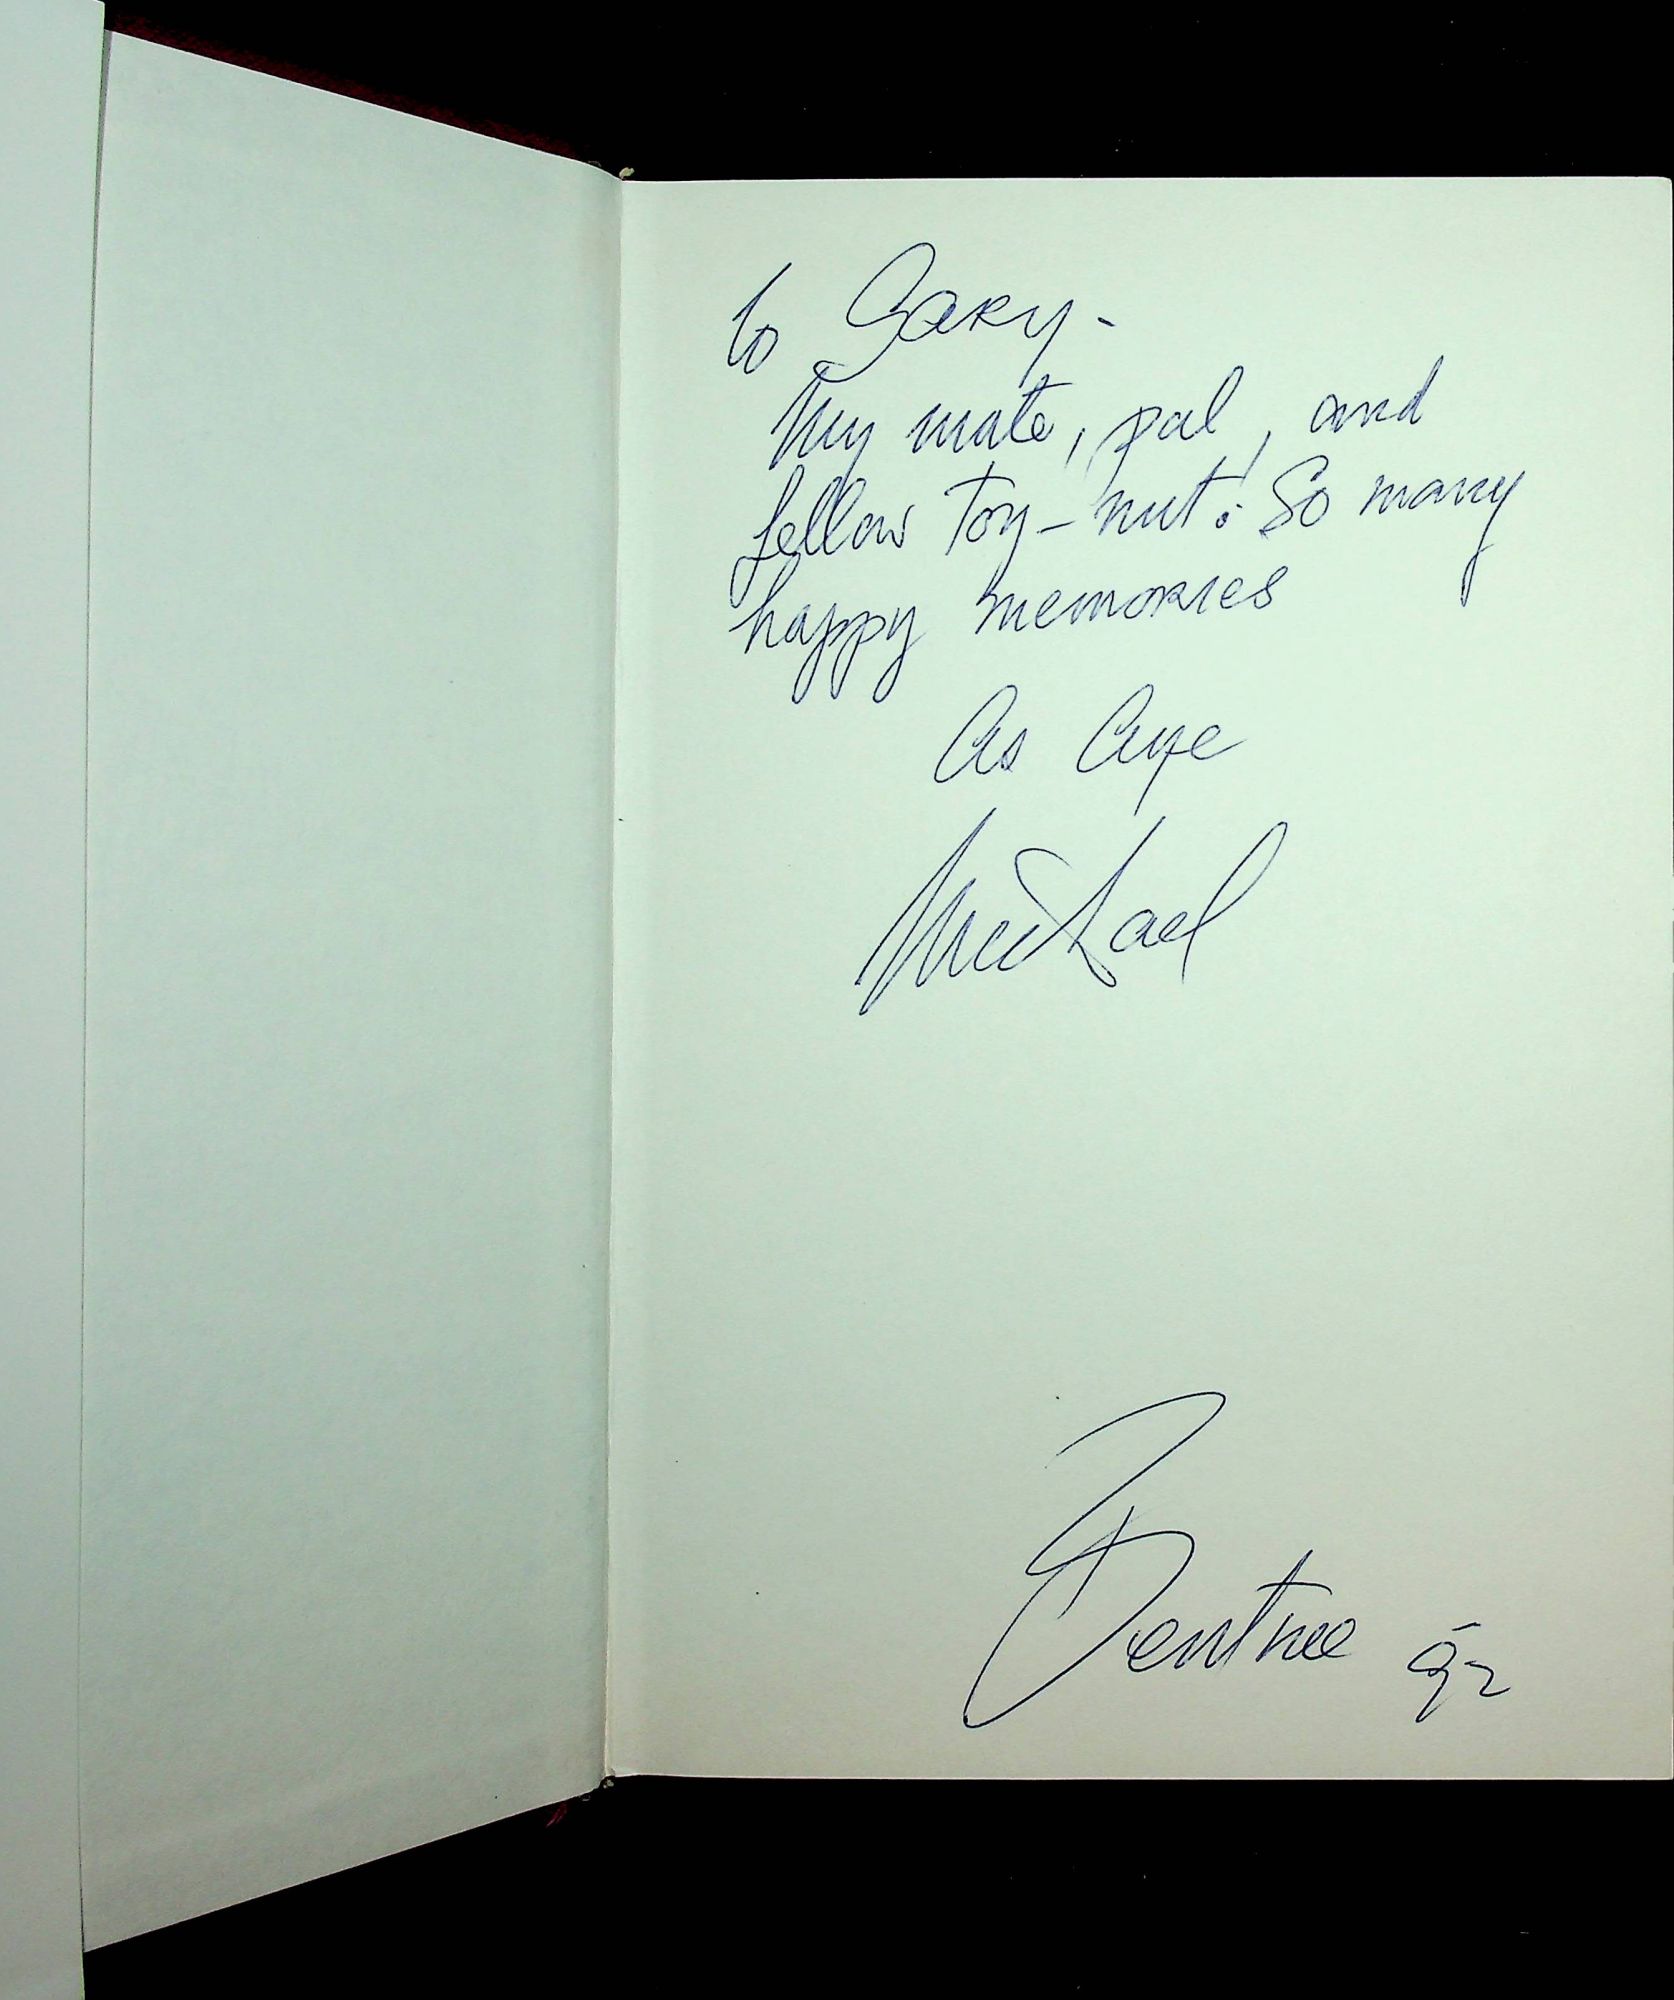 to Gary-
My mate, pal, and
fellow Toy-nut! So many
happy memories
As Aye
Michael
Bentine 92